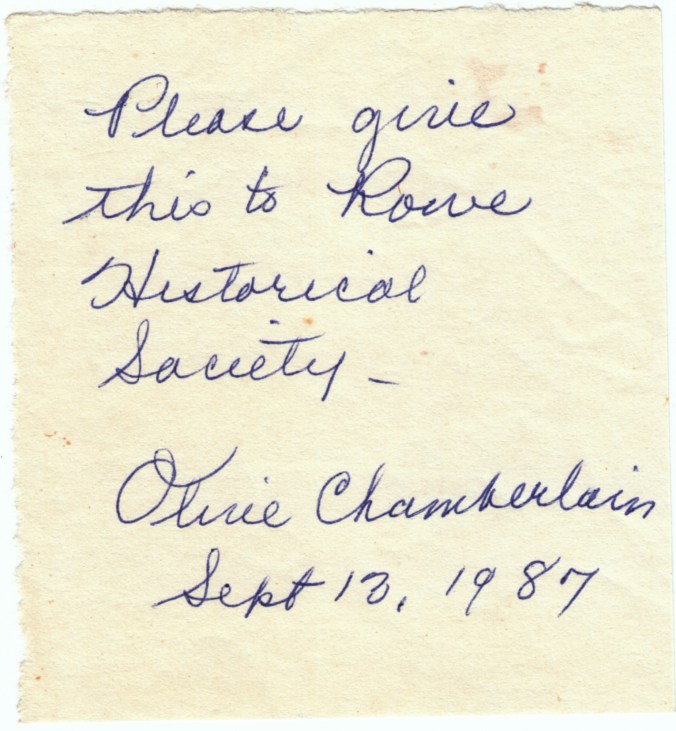 Please give
this to Rowe
Historical
Society –
Olive Chamberlain
Sept 13, 1987